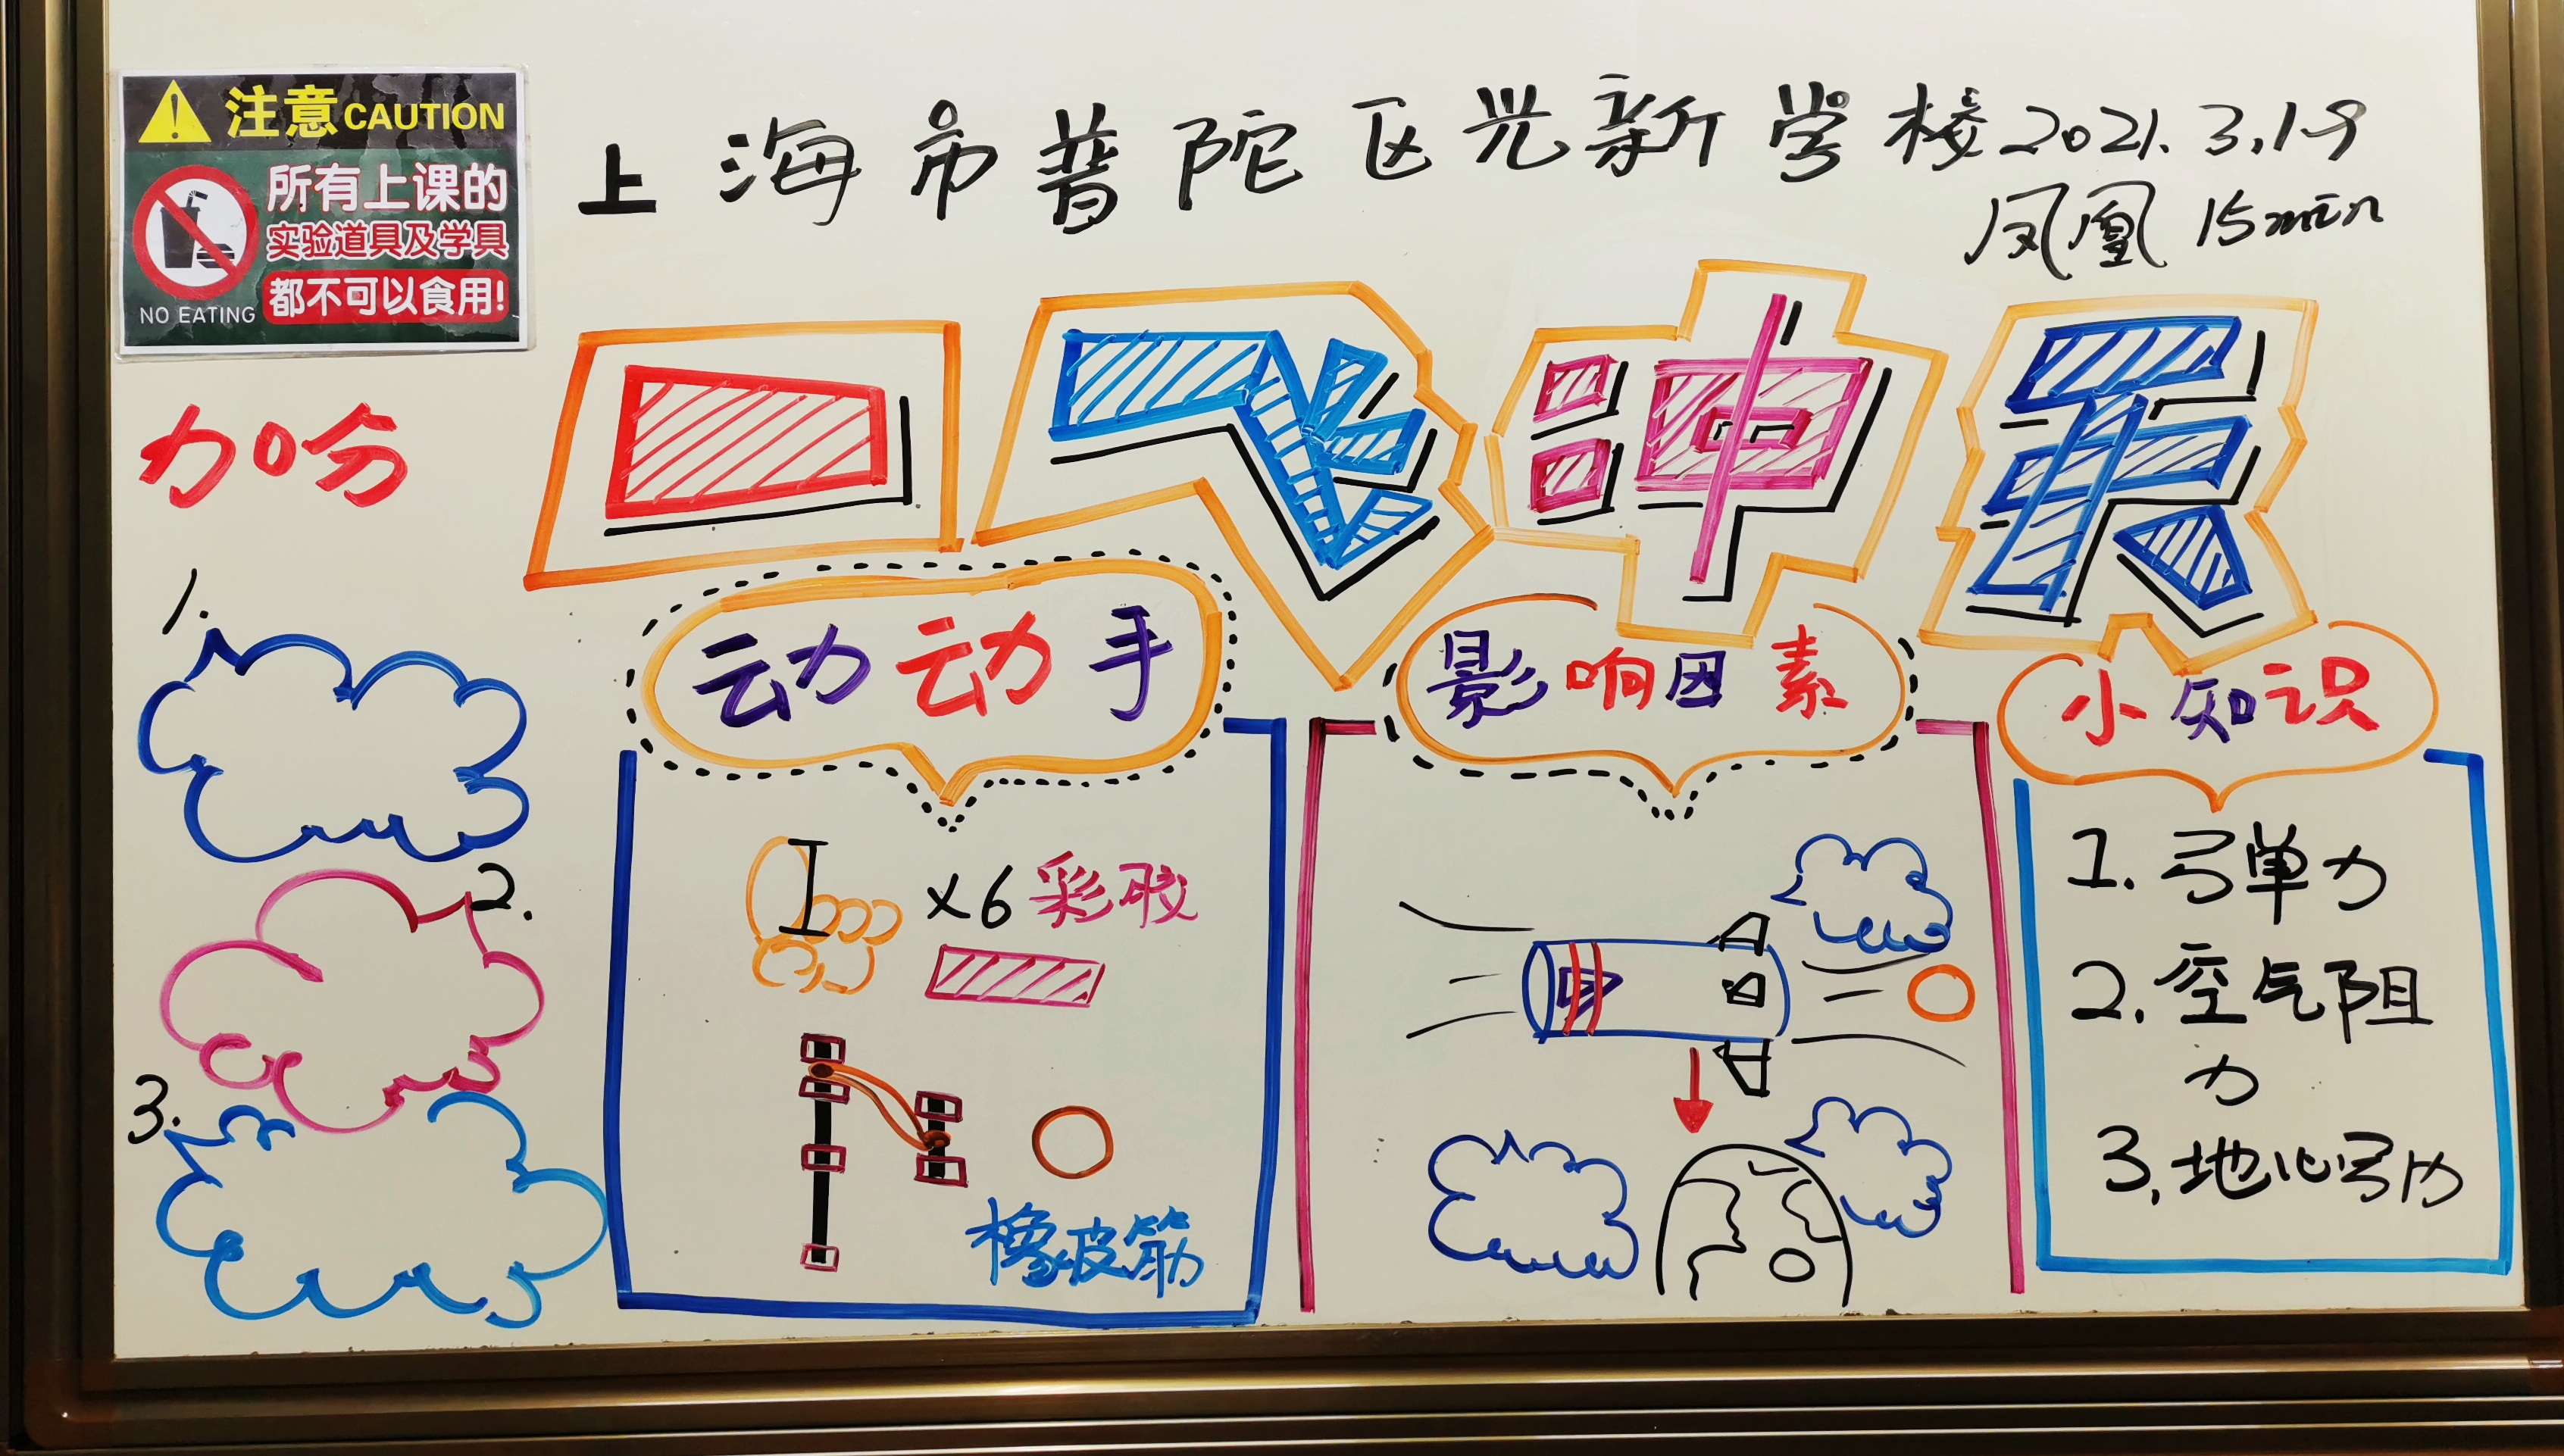 注意 CAUTION
所有上课的
实验道具及学具
都不可以食用!
NO EATING
上海市普陀区光新学校 2021.3.19
凤凰 15min
一飞冲天
加分
1.
2.
3.
动动手
x6 彩胶
橡皮筋
影响因素
小知识
1. 弹力
2. 空气阻
力
3. 地心引力